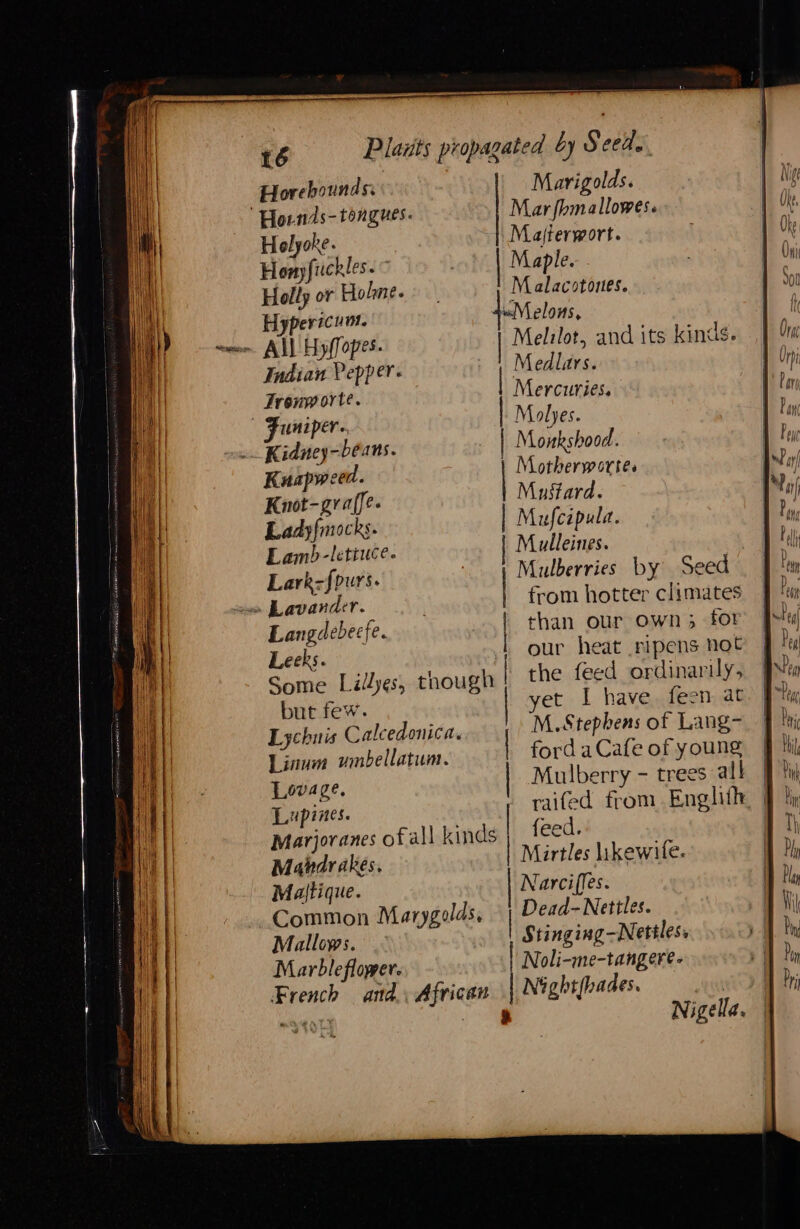 16 Plants propagated by Seed.
Horehounds.
Hounds-tongues.
Holyoke.
Honyſuckles.
Holly or Holme.
Hypericum.
All Hyſſopes.
Indian Pepper.
Ironworte.
Juniper.
Kidney-beans.
Knapweed.
Knot-graſſe.
Ladyſmocks.
Lamb-lettuce.
Lark-ſpurs.
Lavander.
Langdebeefe.
Leeks.
Some Lillyes, though
but few.
Lychnis Calcedonica.
Linum umbellatum.
Lovage.
Lupines.
Marjoranes of all kinds
Mandrakes.
Maſtique.
Common Marygolds.
Mallows.
Marbleflower.
French and African
Marigolds.
Marſhmallowes.
Maſterwort.
Maple.
Malacotones.
Melons,
Melilot, and its kinds.
Medlars.
Mercuries.
Molyes.
Monkshood.
Motherworte.
Muſtard.
Muſcipula.
Mulleines.
Mulberries by Seed
from hotter climates
than our own; for
our heat ripens not
the ſeed ordinarily,
yet I have ſeen at
M. Stephens of Lang-
ford a Caſe of young
Mulberry - trees all
raiſed from Engliſh
ſeed.
Mirtles likewiſe.
Narciſſes.
Dead-Nettles.
Stinging-Nettles.
Noli-me-tangere.
Nightſhades.
Nigella.